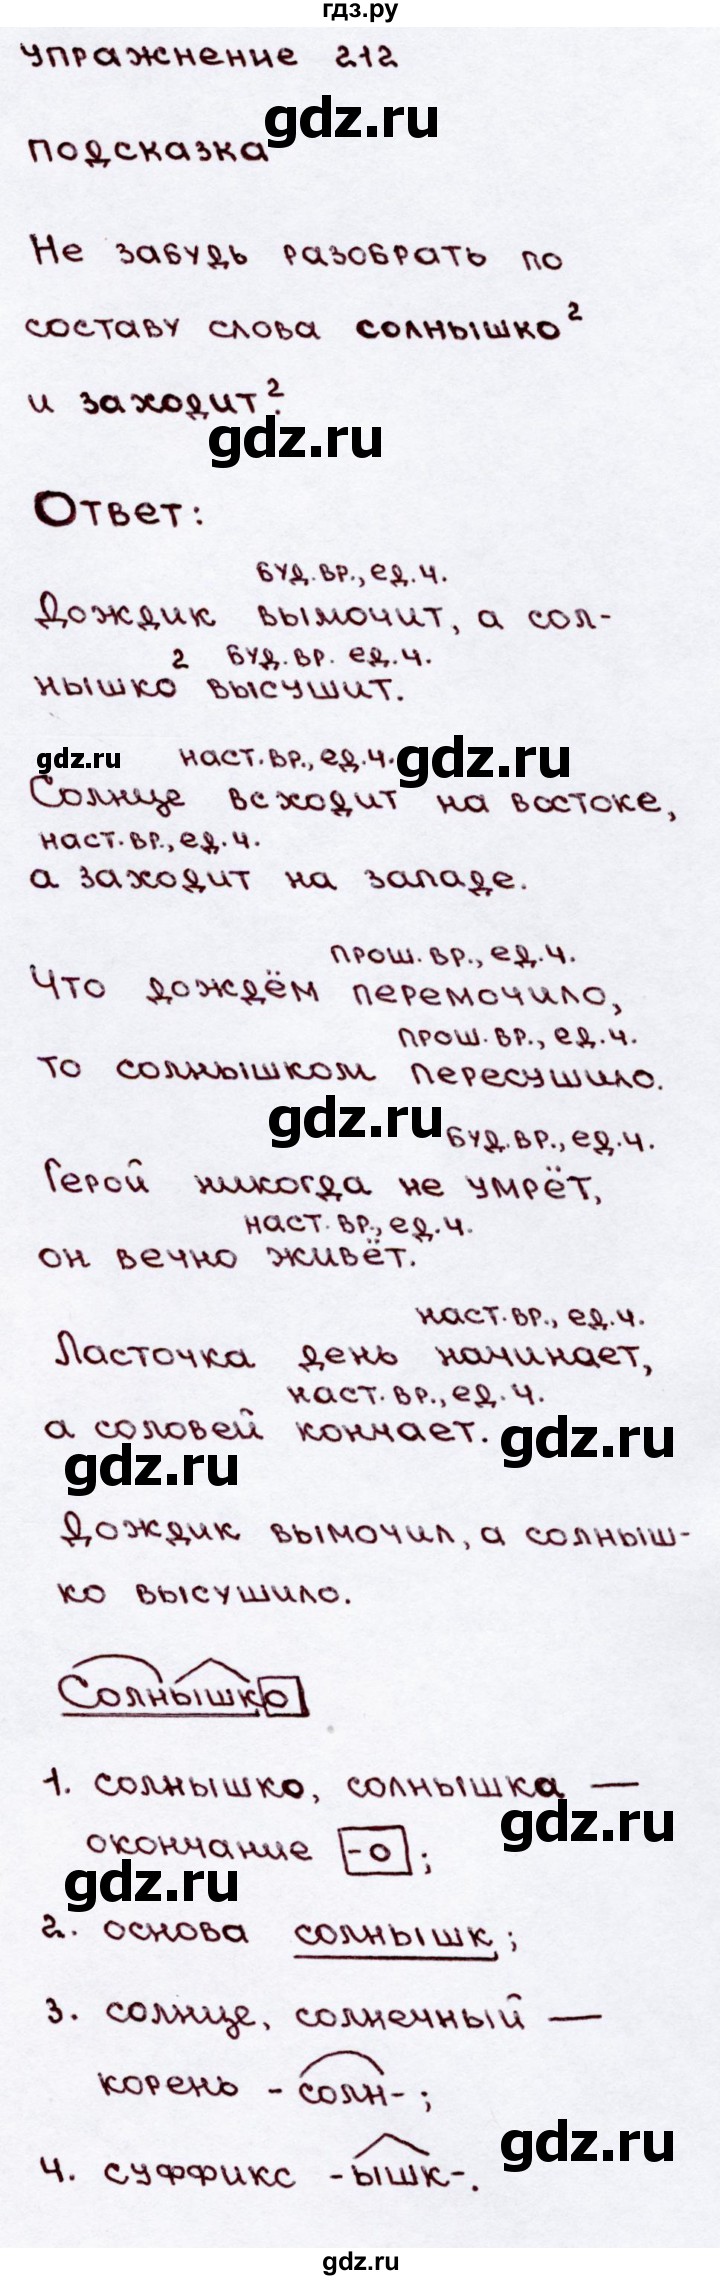 гдз.ру
Упражнение 212
gdz.ru
Подсказка
Не забудь разобрать по
составу слова солнышко²
и заходит².
gdz.ru
Ответ:
буд. вр., ед. ч.
Дождик вымочит, а сол-
2 буд. вр. ед. ч.
нышко высушит.
gdz.ru наст. вр., ед. ч. gdz.ru
Солнце всходит на востоке,
наст. вр., ед. ч.
а заходит на западе.
прош. вр., ед. ч.
Что дождём перемочило,
прош. вр., ед. ч.
то солнышком пересушило.
gdz.ru
буд. вр., ед. ч.
Герой никогда не умрёт,
наст. вр., ед. ч.
он вечно живёт.
наст. вр., ед. ч.
Ласточка день начинает,
наст. вр., ед. ч.
а соловей кончает.
gdz.ru
gdz.ru
Дождик вымочил, а солныш-
ко высушило.
Солнышко
1. солнышко, солнышка —
gdz.ru
окончание -о ;
gdz.ru
2. основа солнышк ;
3. солнце, солнечный —
корень - солн- ;
gdz.ru
4. суффикс -ышк-.
gdz.ru